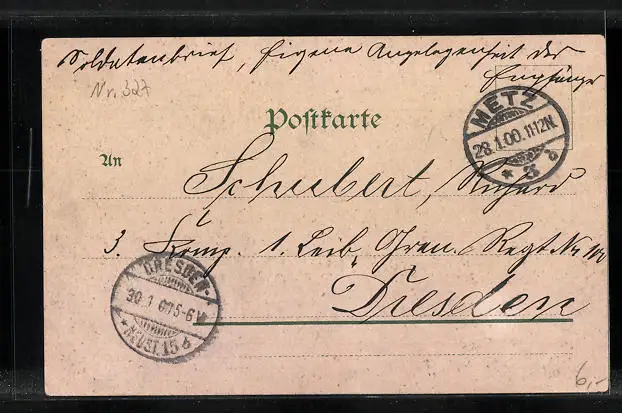 Soldatenbrief, Eigene Angelegenheit des
Empfängers
Nr. 327
Postkarte
METZ
28.1.00.11-12N.
* 3 b
An
Schubert, Richard
3. Komp. 1. Leib, Gren. Regt. Nr. 100
Dresden
DRESDEN-
30 1 00 5-6 V
* NEUST. 15 d
6,-